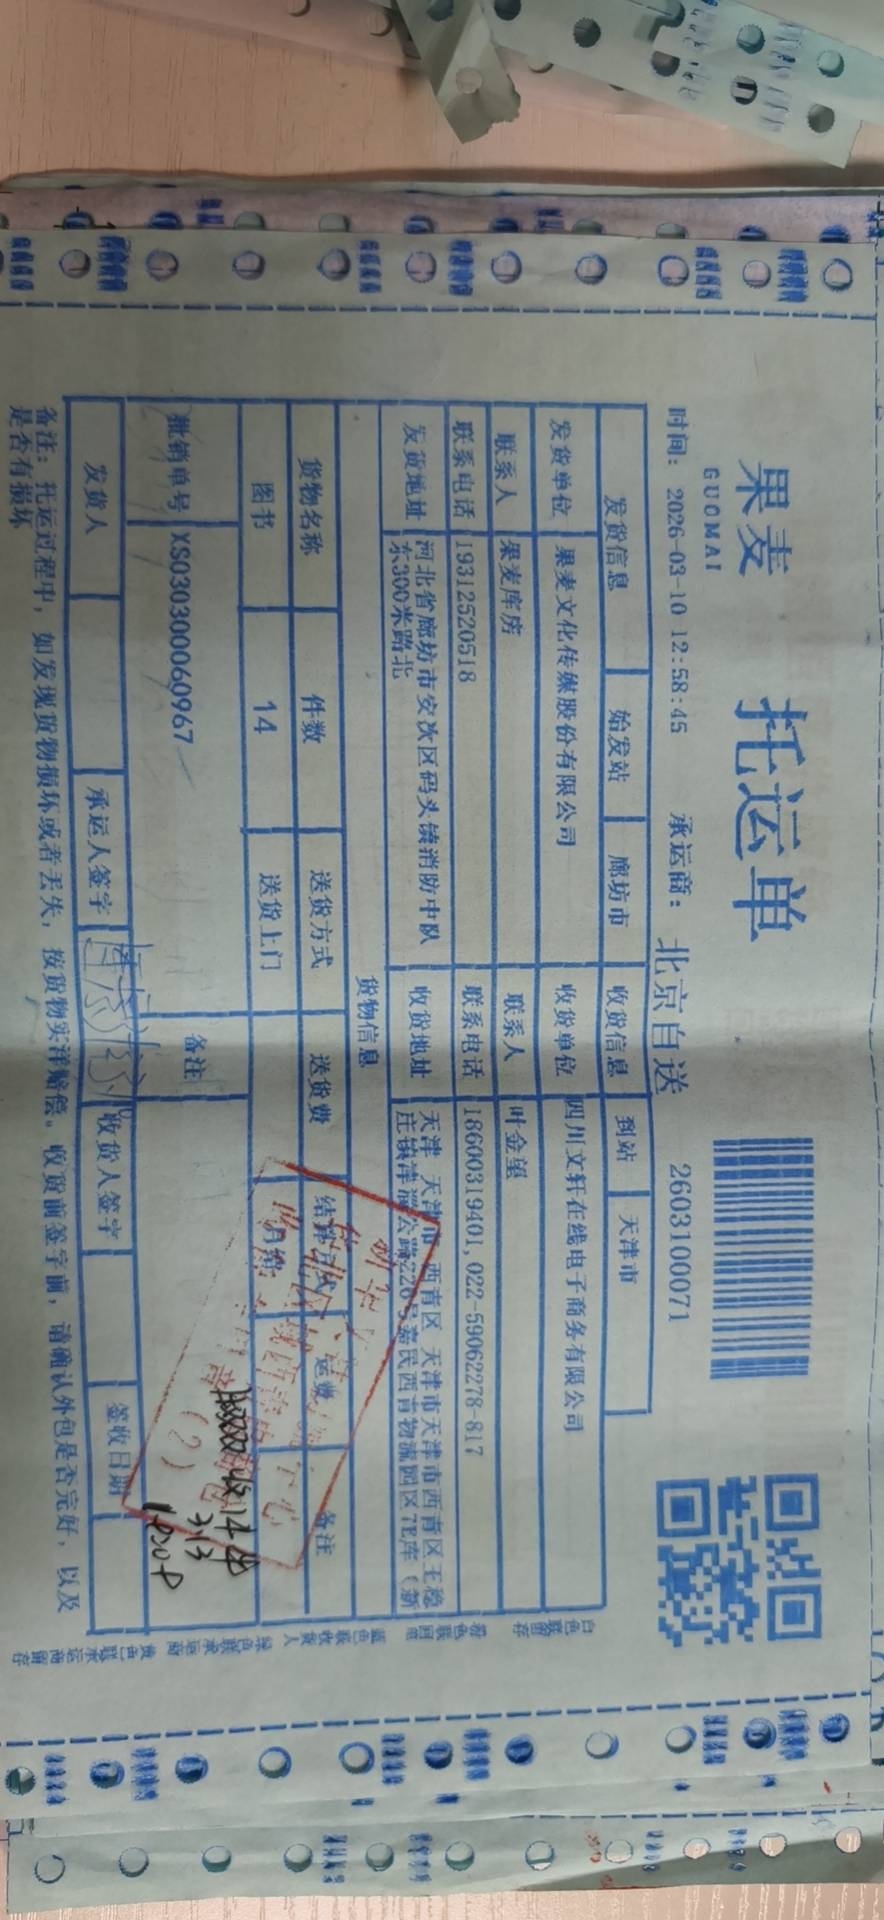 果麦
GUOMAI
托运单
时间: 2026-03-10 12:58:45 承运商: 北京自送 2603100071
发货信息 始发站 廊坊市 收货信息 到站 天津市
发货单位 果麦文化传媒股份有限公司 收货单位 四川文轩在线电子商务有限公司
联系人 果麦库房 联系人 叶金望
联系电话 19312520518 联系电话 18600319401,022-59062278-817
发货地址 河北省廊坊市安次区码头镇消防中队
东300米路北
收货地址 天津 天津市 西青区 天津市天津市西青区王稳
庄镇津淄公路226号嘉民西青物流园区7E库(新
货物信息
货物名称 件数 送货方式 送货费 结算方式 运费 备注
图书 14 送货上门 月结
批销单号 XS030300060967 备注
收14件
3.13
发货人 承运人签字 收货人签字 签收日期
备注: 托运过程中, 如发现货物损坏或者丢失, 按货物实洋赔偿。收货前签字前, 请确认外包是否完好, 以及
是否有损坏
白色联留存 粉色联回单 蓝色联收货人 绿色联承运商 黄色联承运商留存